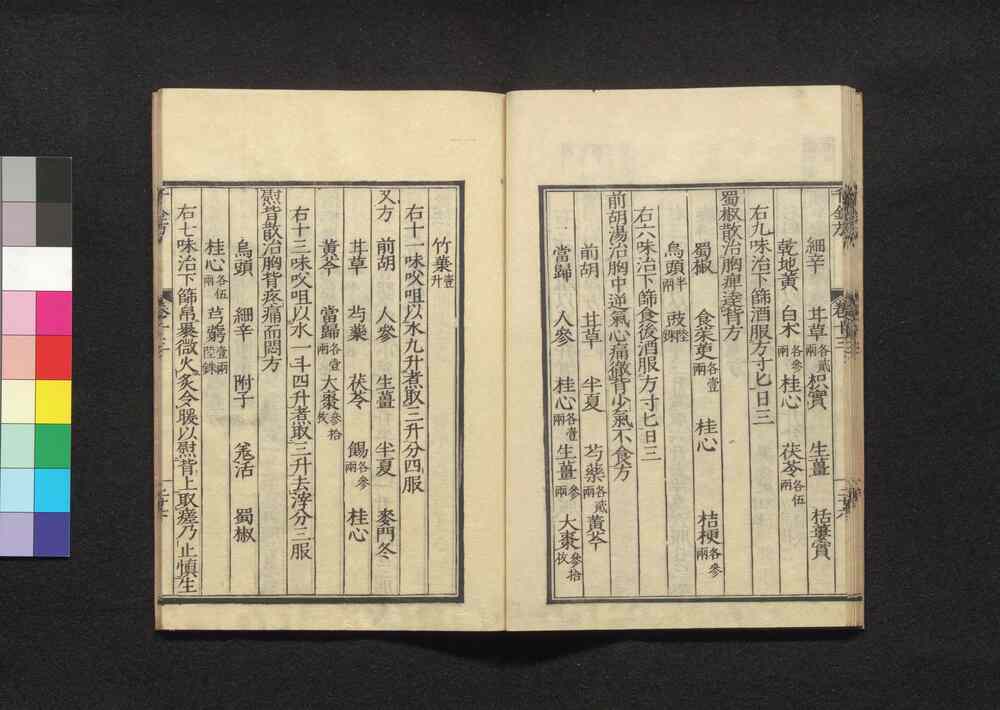 細辛 甘草各貳兩 枳實 生薑 栝蔞實
乾地黃 白朮各參兩 桂心 茯苓各伍兩
右九味治下篩酒服方寸匕日三
蜀椒散治胸痺達背方
蜀椒 食茱萸各壹兩 桂心 桔梗各參兩
烏頭半兩 豉陸銖
右六味治下篩食後酒服方寸匕日三
前胡湯治胸中逆氣心痛徹背少氣不食方
前胡 甘草 半夏 芍藥各貳兩 黃芩
當歸 人參 桂心各壹兩 生薑參兩 大棗參拾枚
竹葉壹升
右十一味㕮咀以水九升煮取三升分四服
又方 前胡 人參 生薑 半夏 麥門冬
甘草 芍藥 茯苓 餳各參兩 桂心
黃芩 當歸各壹兩 大棗參拾枚
右十三味㕮咀以水一斗四升煮取三升去滓分三服
熨背散治胸背疼痛而悶方
烏頭 細辛 附子 羌活 蜀椒
桂心各伍兩 芎藭壹兩陸銖
右七味治下篩帛裹微火炙令暖以熨背上取瘥乃止慎生